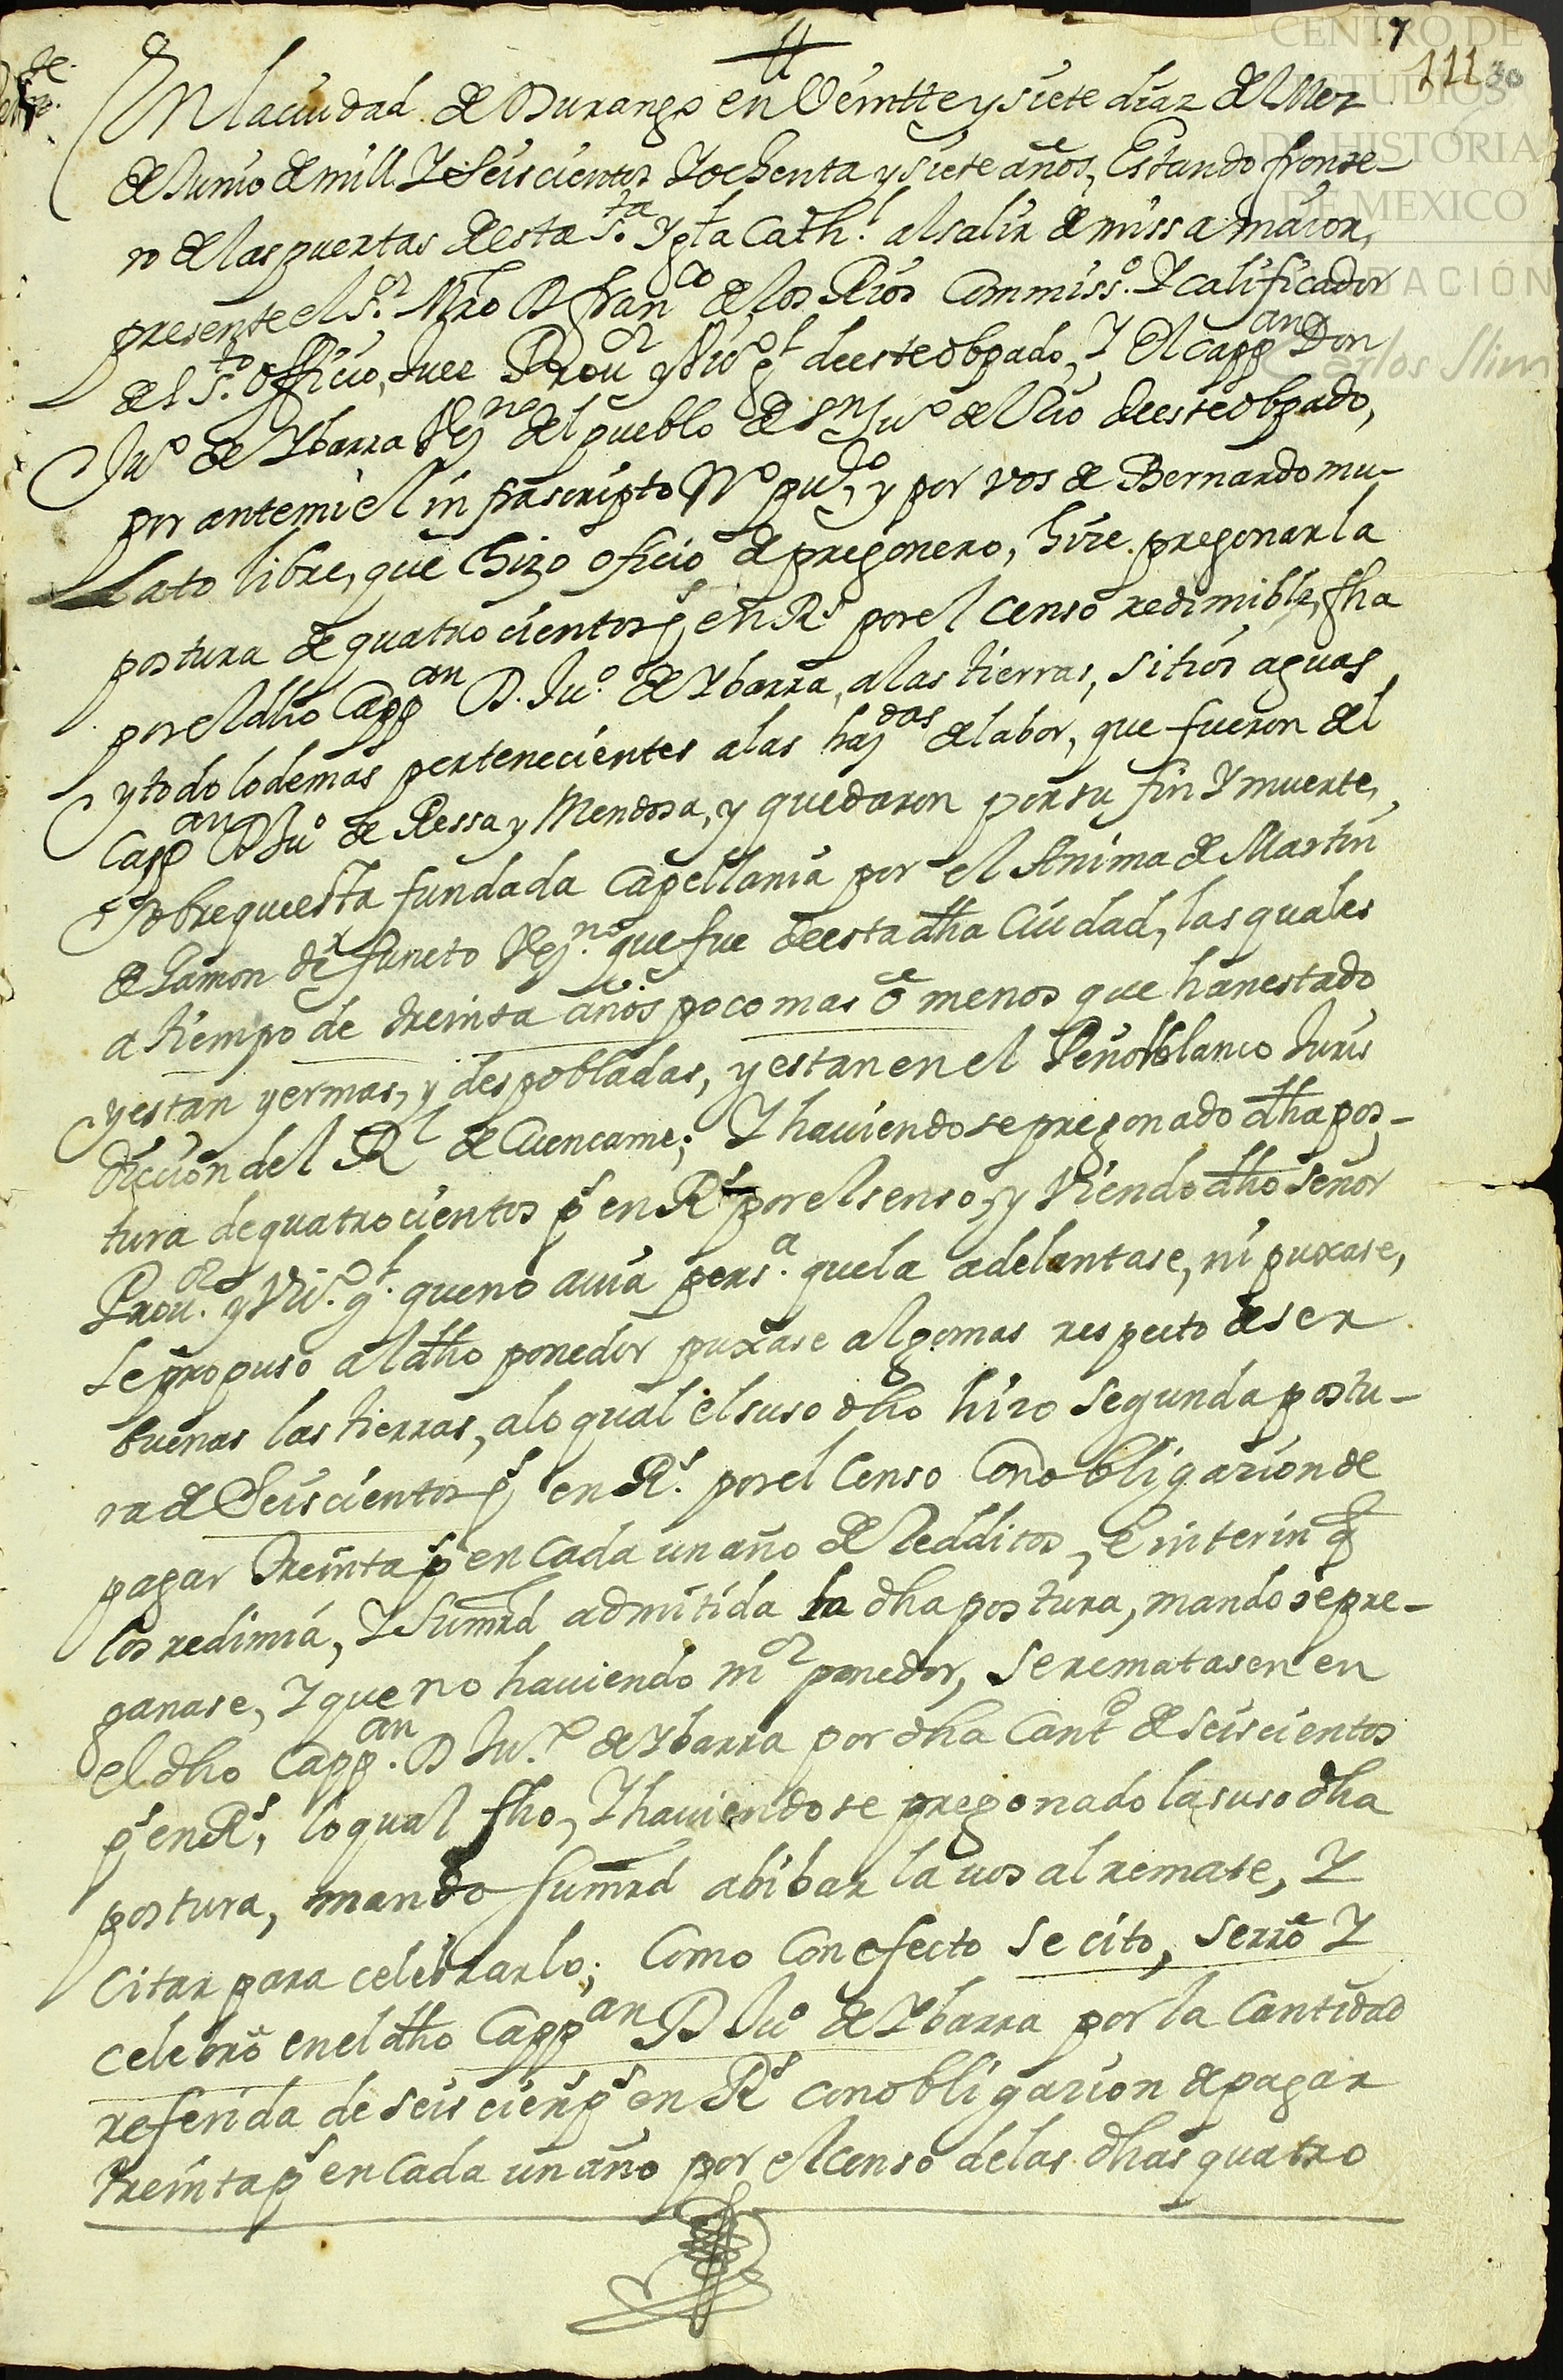 7
111 30
CENTRO DE
ESTUDIOS
DE HISTORIA
DE MEXICO
FUNDACIÓN
Carlos Slim
En la ciudad de Durango en Veintte y siete diaz del Mez
de Junio de mill Y Seiscientos Y ochenta y siete años, Estando fronte-
ro de las puertas de esta S.ta Ygla Cath.l al salir de missa maior,
presente el S.r Mro D fran.co de los Rios Commiss.o Y calificador
del S.to Officio, Juez Prou.or y Vic.o g.l de este obpado, Y El capp.an Don
Ju.o de Ybarra Vez.no del pueblo de S.n Ju.o del Rio de este obpado,
por ante mi el infrascripto No pu.co, y por vos de Bernardo mu-
lato libre, que hizo oficio de pregonero, hize pregonar la
postura de quatrocientos ps en Rs por el censo redimible, fha
por el dho Capp.an D. Ju.o de Ybarra, a las tierras, sitios aguas
y todo lo demas pertenecientes a las haz.das de labor, que fueron del
Capp.an D Ju.o de Ressa y Mendosa, y quedaron por su fin Y muerte,
Sobre que esta fundada Capellania por el Anima de Martin
de Gamon difuncto Vez.no que fue de esta dha Ciudad, las quales
a tiempo de treinta años poco mas ô menos que han estado
y estan yermas, y despobladas, y estan en el Peñol blanco Juris
diccion del Rl de Cuencame; Y hauiendose pregonado dha pos-
tura de quatrocientos ps en Rs por el senso, y Viendo dho señor
Prou.or y Vic.o g.l que no auia pers.a que la adelantase, ni puxase,
se propuso al dho ponedor puxase algo mas respecto de ser
buenas las tierras, a lo qual el suso dho hizo segunda postu-
ra de Seiscientos ps en Rs. por el Censo Con obligazion de
pagar treinta ps en Cada un año de Redditos, e interin q
los redimia, Y su mrd admitida la dha postura, mando se pre-
gonase, Y que no hauiendo m.or ponedor, se rematasen en
el dho Capp.an D Ju.o de Ybarra por dha Cant.d de seiscientos
ps en Rs, lo qual fho, Y hauiendose pregonado la suso dha
postura, mando su mrd abibar la uos al remate, Y
Citar para celebrarlo; Como Con efecto se cito, serro Y
celebrô en el dho Capp.an D Ju.o de Ybarra por la Cantidad
referida de seis cien.s ps en Rs con obligazion de pagar
treinta ps en Cada un año por el censo de las dhas quatro